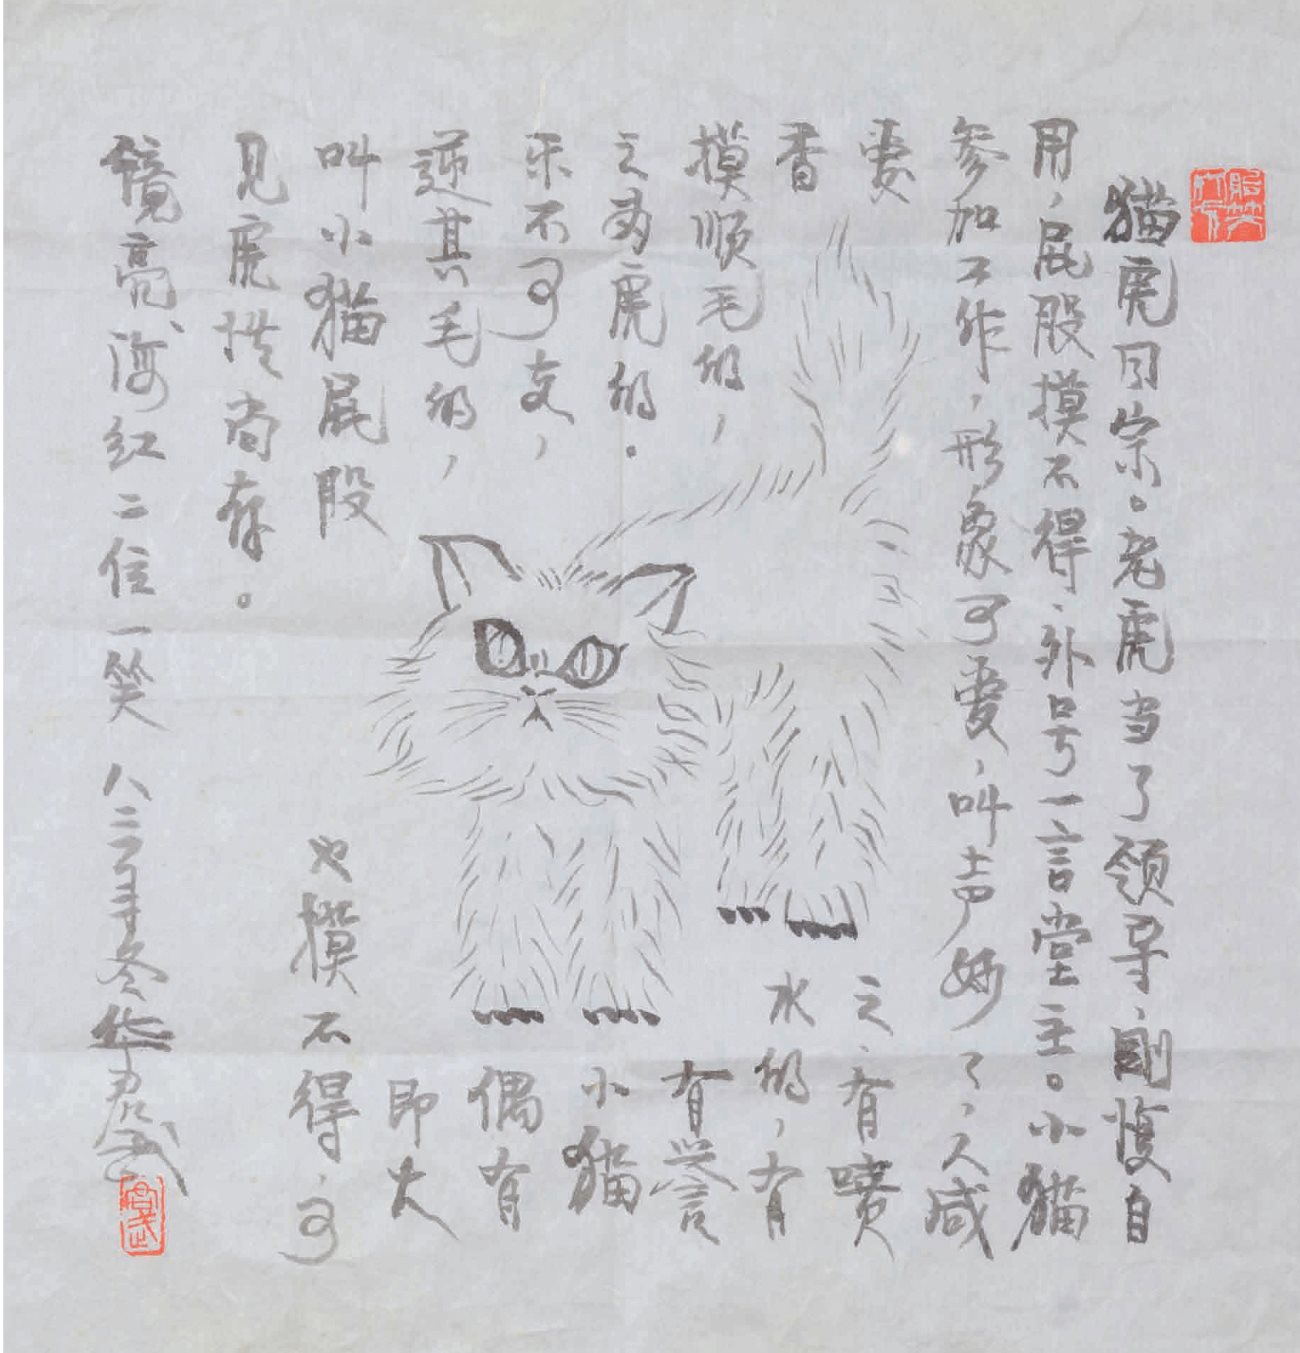 猫虎同宗。老虎当了领导,刚愎自
用,屁股摸不得,外号一言堂主。小猫
参加工作,形象可爱,叫声妙了,人咸
爱之,有喷
香水的,有
摸顺毛的,有誉
之为虎的。小猫
乐不可支,偶有
逆其毛的,即大
叫小猫屁股也摸不得,可
见虎性尚存。
镜亮海红二位一笑 八二年冬华君武